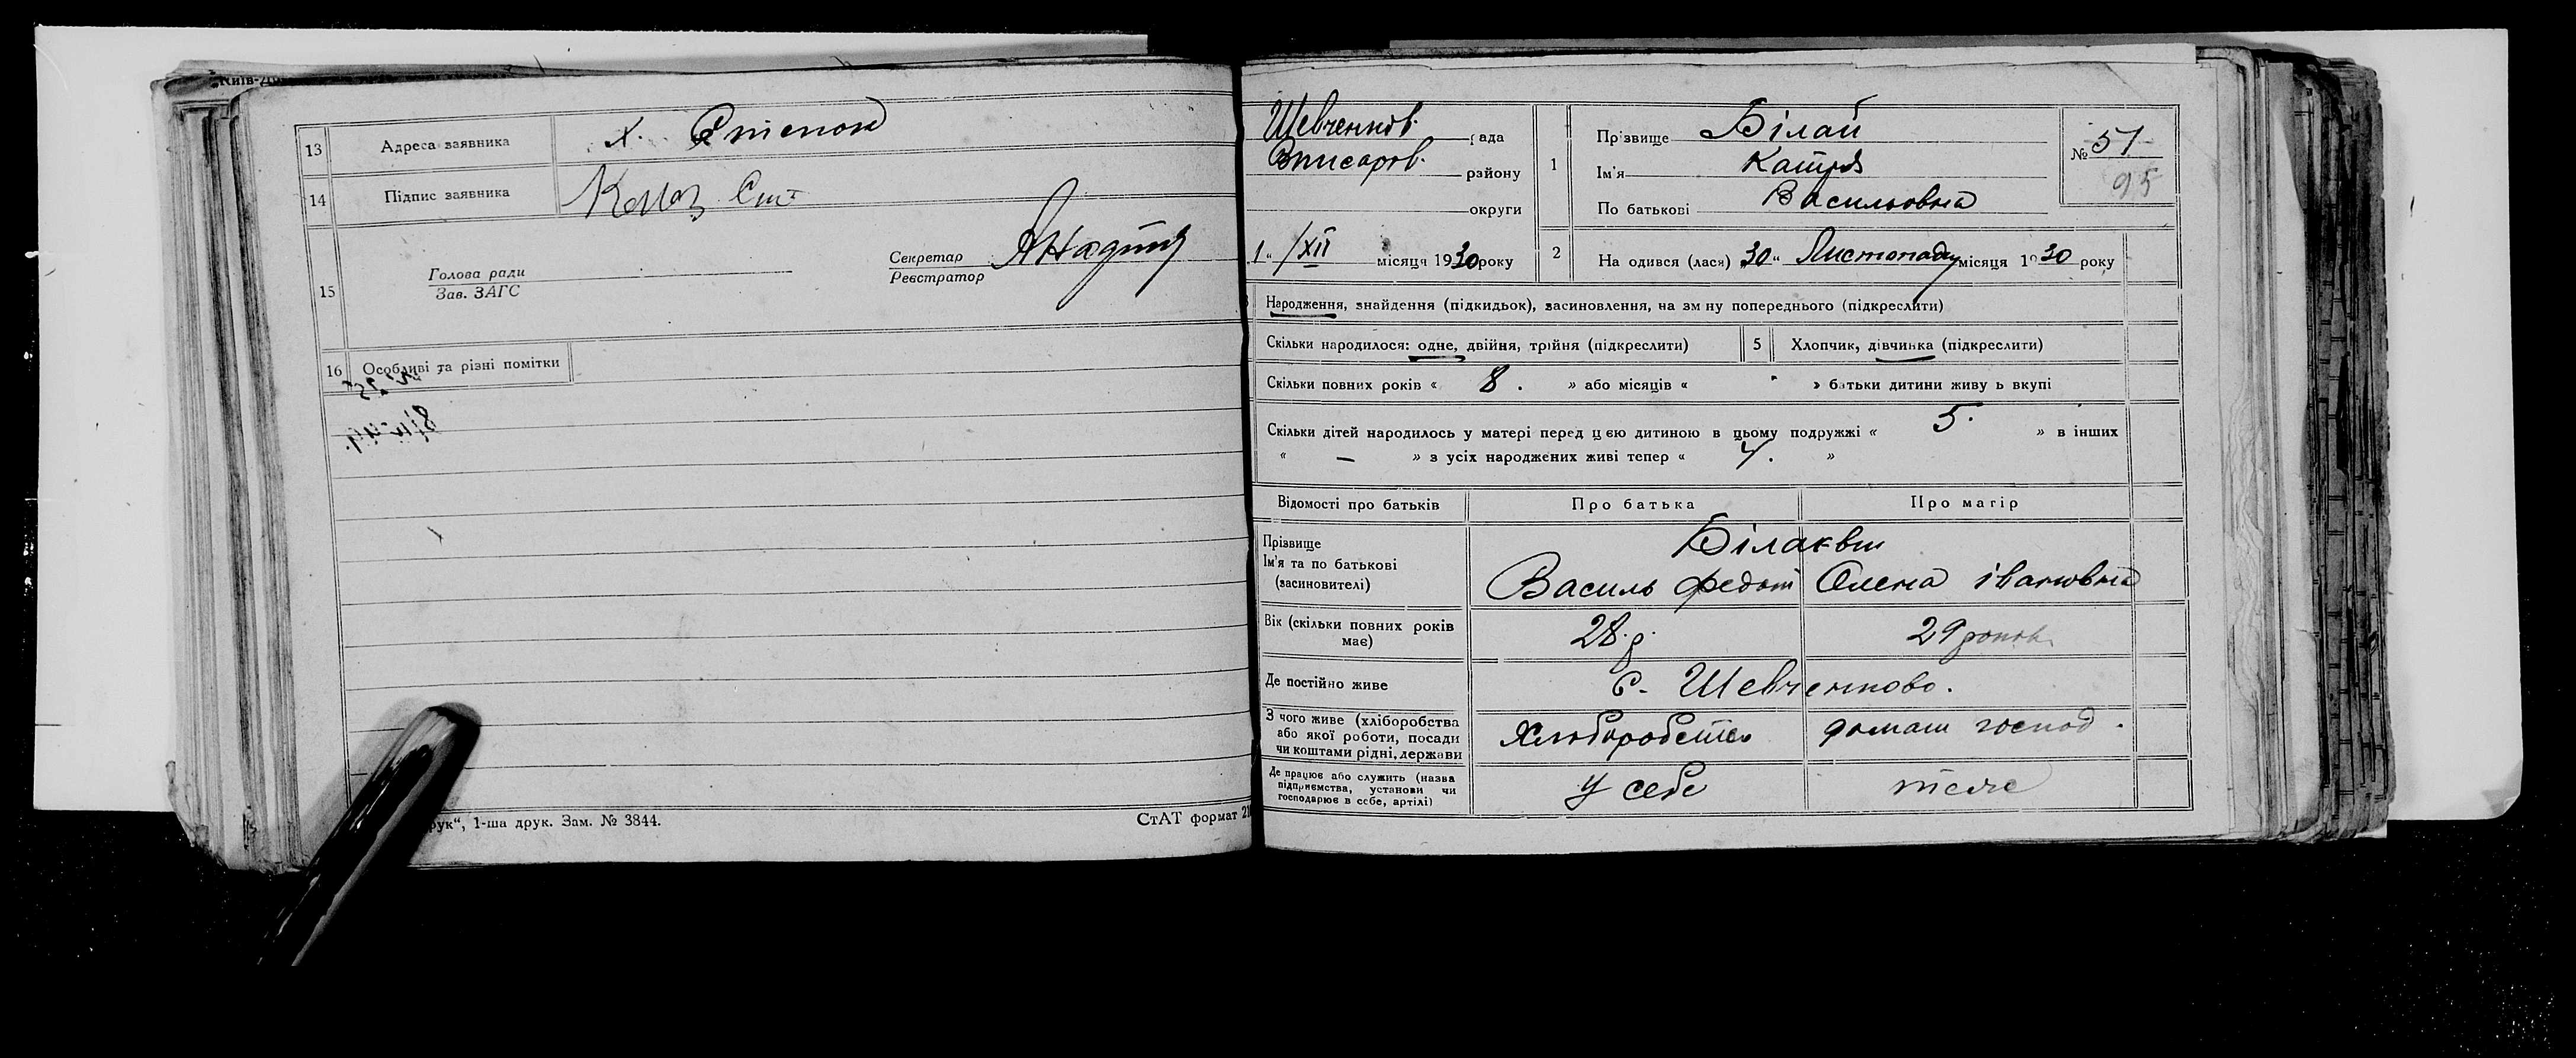 13 Адреса заявника х. Степок
14 Підпис заявника
15 Голова ради
Зав. ЗАГС
Секретар
Реєстратор
16 Особливі та різні помітки
рук“, 1-ша друк. Зам. № 3844.
СтАТ формат
Шевченков. рада
району
округи
1“ /XII місяця 1930 року
1 Прізвище Білай
Ім'я Катря
По батькові Васильовна
№ 51
95
2 На одився (лася) „30“ Листопаду місяця 1930 року
Народження, знайдення (підкидьок), засиновлення, на зм ну попереднього (підкреслити)
Скільки народилося: одне, двійня, трійня (підкреслити) 5 Хлопчик, дівчинка (підкреслити)
Скільки повних років « 8. » або місяців « » батьки дитини живу ь вкупі
Скільки дітей народилось у матері перед цією дитиною в цьому подружжі « 5. » в інших
« — » з усіх народжених живі тепер « 4. »
Відомості про батьків Про батька Про матір
Прізвище
Ім'я та по батькові
(засиновителі)
Білаєви
Василь Федот Олена івановна
Вік (скільки повних років
має)
28.р. 29 років
Де постійно живе С. Шевченково.
З чого живе (хліборобства
або якої роботи, посади
чи коштами рідні, держави
Хліборобство домаш господ.
Де працює або служить (назва
підприємства, установи чи
господарює в себе, артілі)
У себе теже